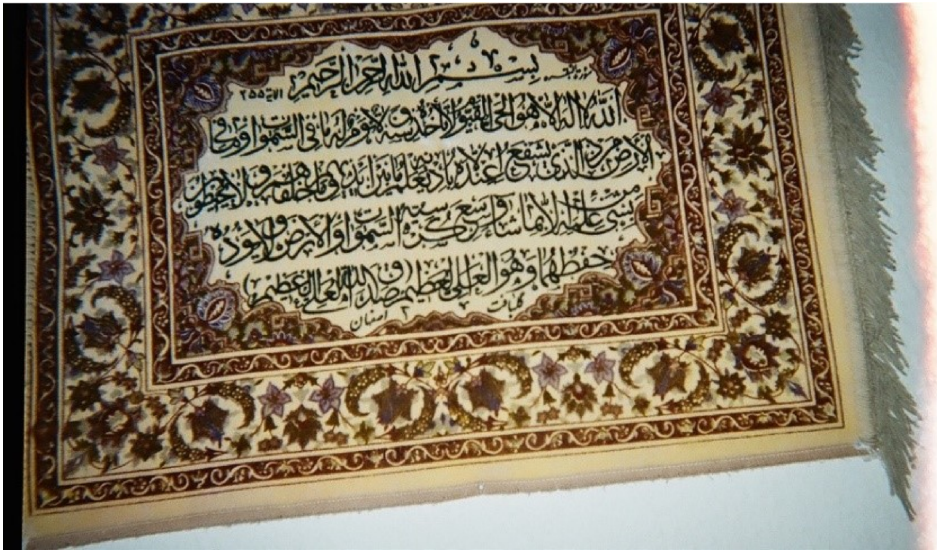 بسم الله الرحمن الرحيم
سورة البقره
الاية ٢٥٥
الله لا اله الا هو الحي القيوم لا تأخذه سنة ولا نوم له ما في السموات وما في
الارض من ذا الذي يشفع عنده الا باذنه يعلم ما بين ايديهم وما خلفهم ولا يحيطون
بشيء من علمه الا بما شاء وسع كرسيه السموات والارض ولا يؤده
حفظهما وهو العلي العظيم (صدق الله العلي العظيم)
اصفهان